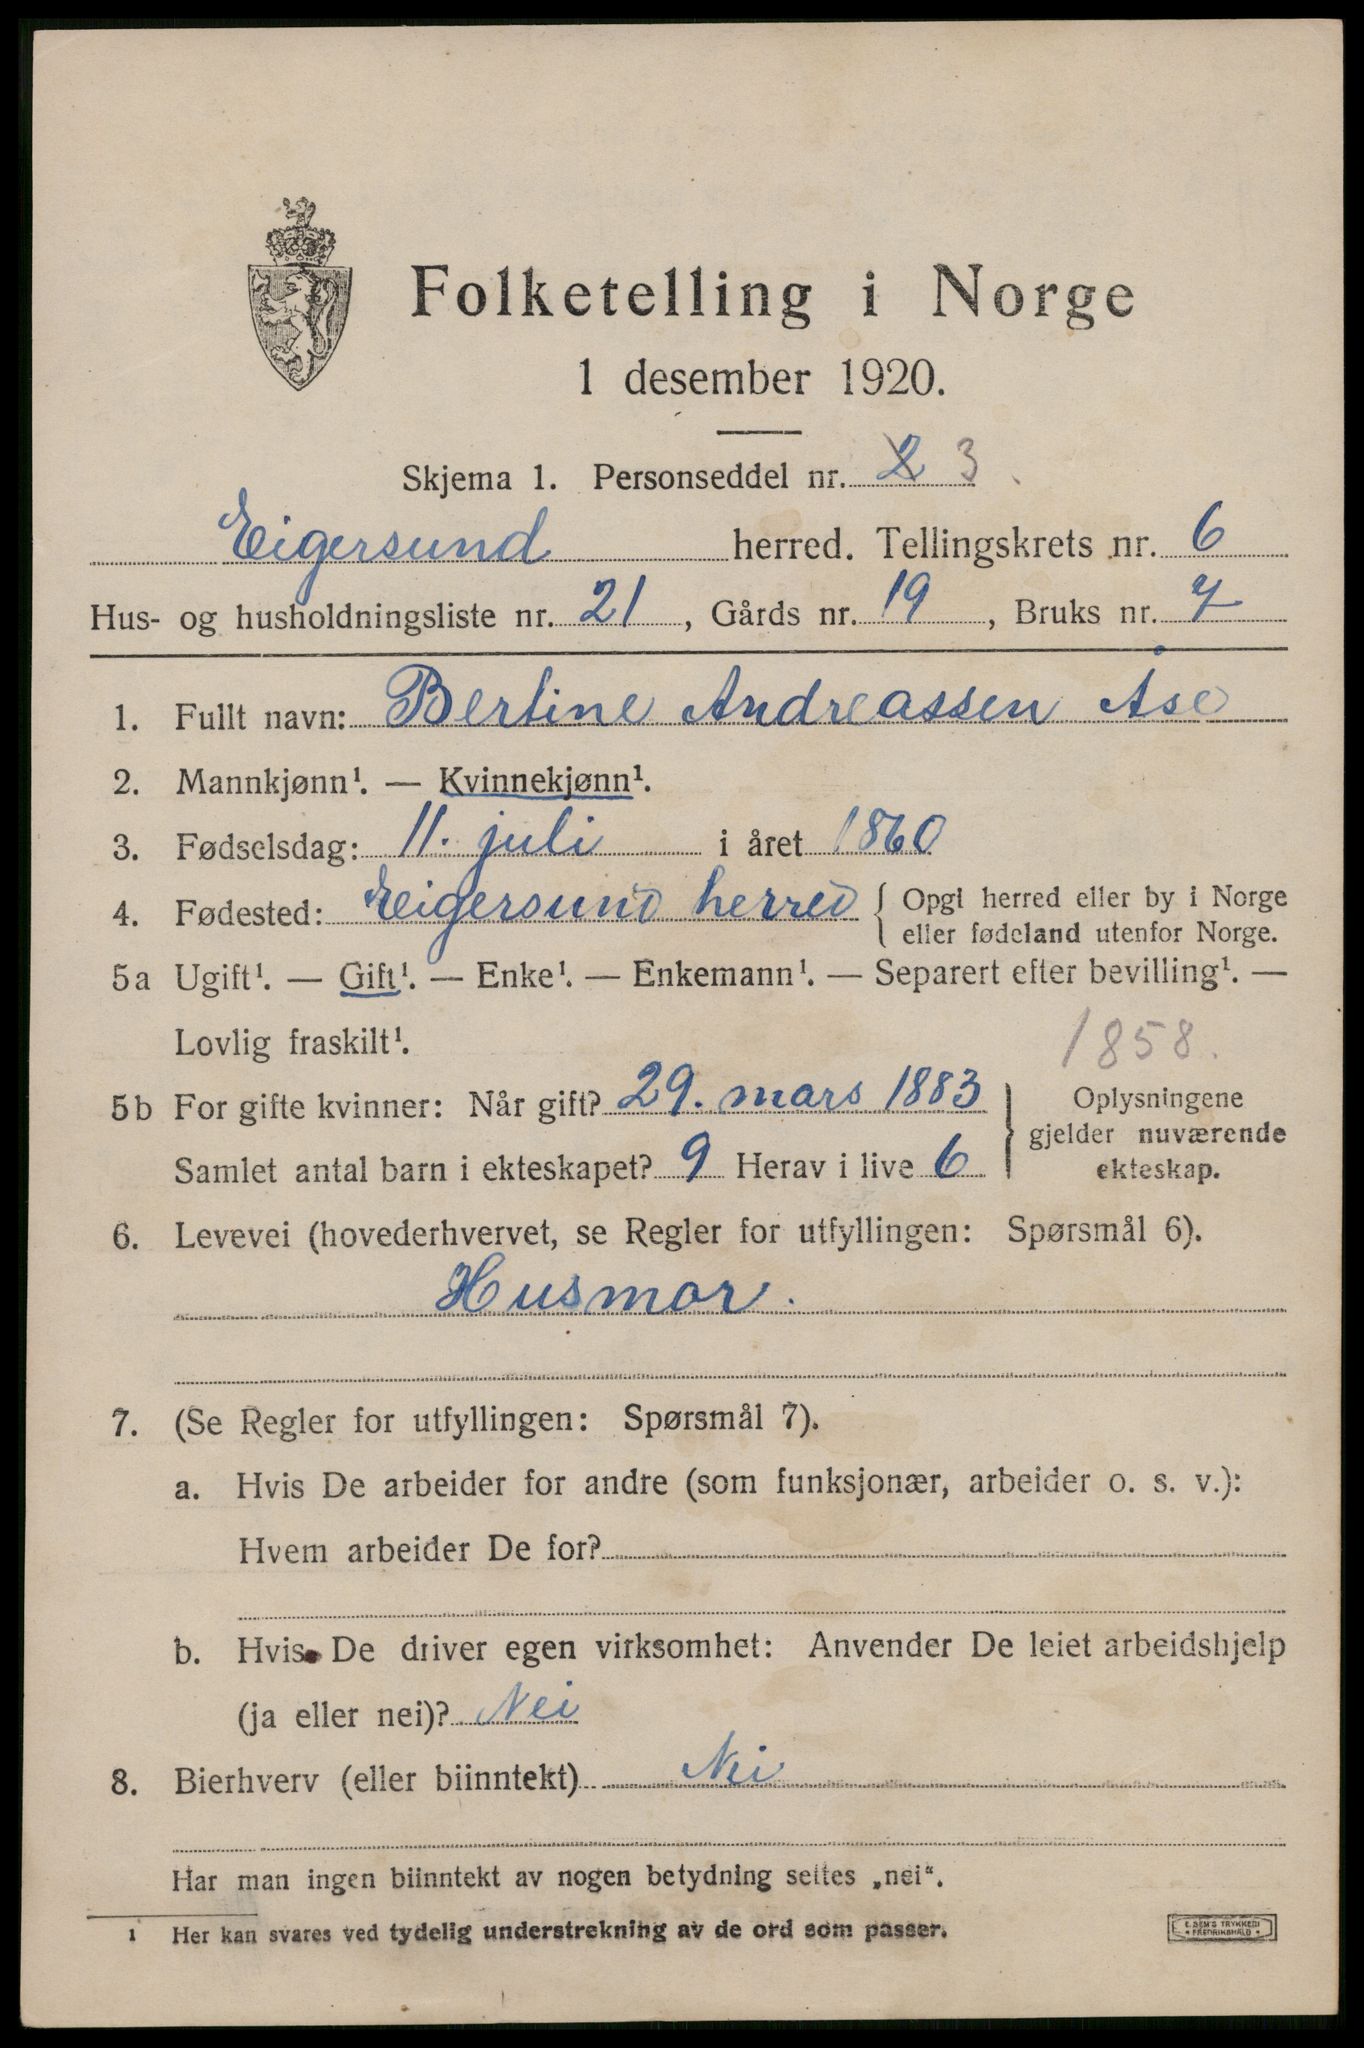 Folketelling i Norge
1 desember 1920.
Skjema 1. Personseddel nr. 2 3.
Eigersund herred. Tellingskrets nr. 6
Hus- og husholdningsliste nr. 21, Gårds nr. 19, Bruks nr. 7
1. Fullt navn: Bertine Andreassen Åse
2. Mannkjønn¹. — Kvinnekjønn¹.
3. Fødselsdag: 11. juli i året 1860
4. Fødested: Eigersund herred { Opgi herred eller by i Norge
eller fødeland utenfor Norge.
5a Ugift¹. — Gift¹. — Enke¹. — Enkemann¹. — Separert efter bevilling¹. —
Lovlig fraskilt¹.
1858.
5b For gifte kvinner: Når gift? 29. mars 1883 } Oplysningene
gjelder nuværende
Samlet antal barn i ekteskapet? 9 Herav i live 6 ekteskap.
6. Levevei (hovederhvervet, se Regler for utfyllingen: Spørsmål 6).
Husmor.
7. (Se Regler for utfyllingen: Spørsmål 7).
a. Hvis De arbeider for andre (som funksjonær, arbeider o. s. v.):
Hvem arbeider De for?
b. Hvis De driver egen virksomhet: Anvender De leiet arbeidshjelp
(ja eller nei)? Nei
8. Bierhverv (eller biinntekt) Nei
Har man ingen biinntekt av nogen betydning settes „nei“.
1 Her kan svares ved tydelig understrekning av de ord som passer.
E. SEM'S TRYKKERI
FREDRIKSHALD